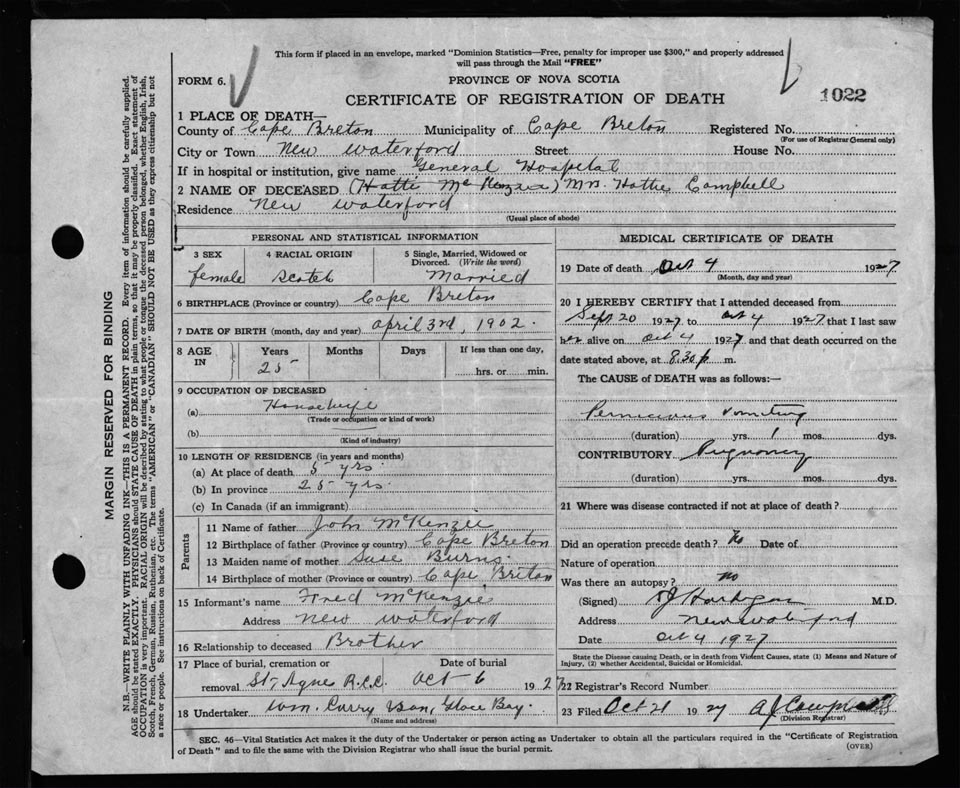 This form if placed in an envelope, marked "Dominion Statistics—Free, penalty for improper use $300," and properly addressed
will pass through the Mail "FREE"
FORM 6.
PROVINCE OF NOVA SCOTIA
CERTIFICATE OF REGISTRATION OF DEATH
1022
1 PLACE OF DEATH—
County of Cape Breton Municipality of Cape Breton Registered No.
(For use of Registrar General only)
City or Town New Waterford Street House No.
If in hospital or institution, give name General Hospital
2 NAME OF DECEASED (Hattie McKenzie) Mrs. Hattie Campbell
Residence New Waterford
(Usual place of abode)
PERSONAL AND STATISTICAL INFORMATION
3 SEX
female
4 RACIAL ORIGIN
Scotch
5 Single, Married, Widowed or
Divorced. (Write the word)
Married
6 BIRTHPLACE (Province or country) Cape Breton
7 DATE OF BIRTH (month, day and year) April 3rd, 1902.
8 AGE
IN
Years
25
Months
Days
If less than one day,
hrs. or min.
9 OCCUPATION OF DECEASED
(a) Housewife
(Trade or occupation or kind of work)
(b)
(Kind of industry)
10 LENGTH OF RESIDENCE (in years and months)
(a) At place of death 5 yrs.
(b) In province 25 yrs.
(c) In Canada (if an immigrant)
Parents
11 Name of father John McKenzie
12 Birthplace of father (Province or country) Cape Breton
13 Maiden name of mother Susie Burns.
14 Birthplace of mother (Province or country) Cape Breton
15 Informant's name Fred McKenzie
Address New Waterford
16 Relationship to deceased Brother
17 Place of burial, cremation or
removal St, Agnes R.C.C.
Date of burial
Oct 6 1927
18 Undertaker Wm. Curry &Son, Glace Bay.
(Name and address)
MEDICAL CERTIFICATE OF DEATH
19 Date of death Oct 4 1927
(Month, day and year)
20 I HEREBY CERTIFY that I attended deceased from
Sept 20 1927 to Oct 4 1927 that I last saw
her alive on Oct 4 1927 and that death occurred on the
date stated above, at 8.30 p m.
The CAUSE of DEATH was as follows:—
Pernicious Vomiting
(duration) yrs. 1 mos. dys.
CONTRIBUTORY Pregnancy
(duration) yrs. mos. dys.
21 Where was disease contracted if not at place of death?
Did an operation precede death? No Date of
Nature of operation
Was there an autopsy? no
(Signed) M.D.
Address New Waterford
Date Oct 4 1927
State the Disease causing Death, or in death from Violent Causes, state (1) Means and Nature of
Injury, (2) whether Accidental, Suicidal or Homicidal.
22 Registrar's Record Number
23 Filed Oct 21 1927 A J Campbell
(Division Registrar)
SEC. 46—Vital Statistics Act makes it the duty of the Undertaker or person acting as Undertaker to obtain all the particulars required in the "Certificate of Registration
of Death" and to file the same with the Division Registrar who shall issue the burial permit.
(OVER)
MARGIN RESERVED FOR BINDING
N.B.—WRITE PLAINLY WITH UNFADING INK—THIS IS A PERMANENT RECORD. Every item of information should be carefully supplied.
AGE should be stated EXACTLY. PHYSICIANS should STATE CAUSE OF DEATH in plain terms, so that it may be properly classified. Exact statement of
OCCUPATION is very important. RACIAL ORIGIN will be described by stating to what people or tongue the deceased person belonged, whether English, Irish,
Scotch, French, German, Russian, Ruthenian, etc. The terms "AMERICAN" or "CANADIAN" SHOULD NOT BE USED as they express citizenship but not
a race or people. See instructions on back of Certificate.